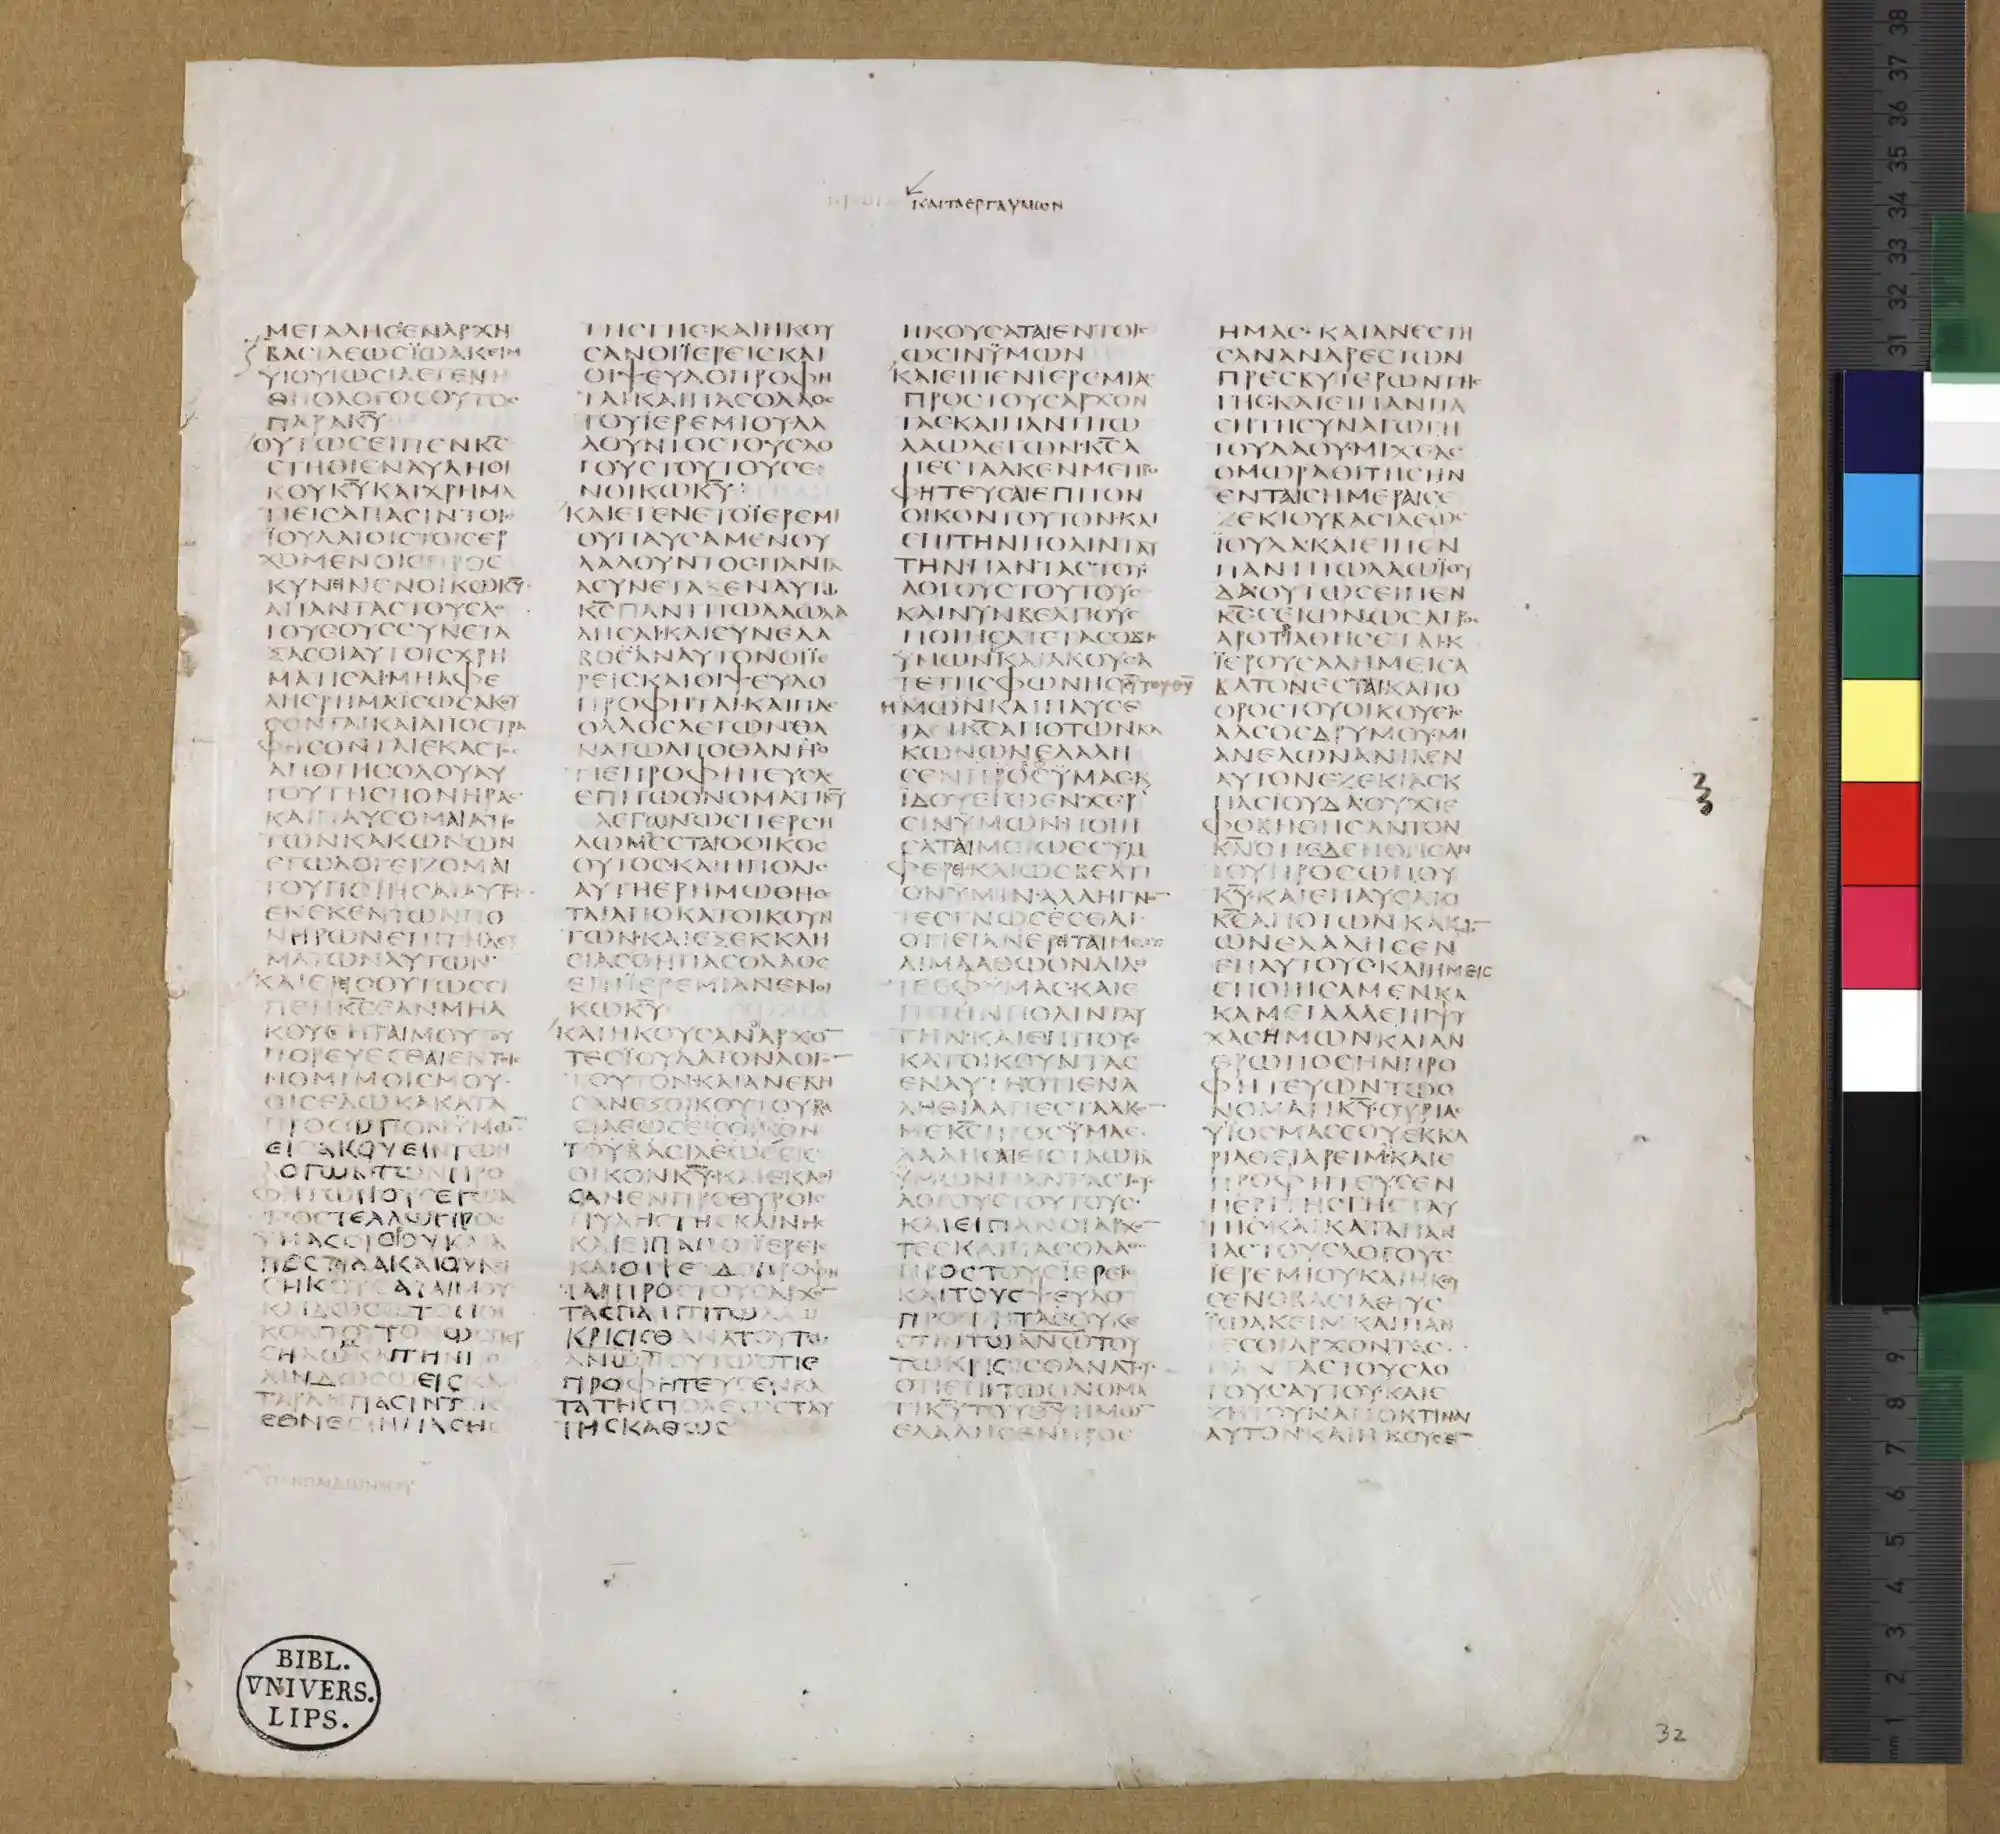 ΚΑΙΤΑΕΡΓΑΥΜΩΝ
ΜΕΓΑΛΗCΕΝΑΡΧΗ
ΒΑCΙΛΕΩCΪΩΑΚΕΙΜ
ΥΙΟΥΙΩCΙΑΕΓΕΝΗ
ΘΗΟΛΟΓΟCΟΥΤΟC
ΠΑΡΑΚ̅Υ̅
ΟΥΤΩCΕΙΠΕΝΚ̅C̅
CΤΗΘΙΕΝΑΥΛΗΟΙ
ΚΟΥΚ̅Υ̅ΚΑΙΧΡΗΜΑ
ΤΙΕΙCΑΠΑCΙΝΤΟΙC
ΪΟΥΔΑΙΟΙCΤΟΙCΕΡ
ΧΟΜΕΝΟΙCΠΡΟC
ΚΥΝΗΝΕΝΟΙΚΩΚ̅Υ̅
ΑΠΑΝΤΑCΤΟΥCΛΟ
ΓΟΥCΟΥCCΥΝΕΤΑ
ΞΑCΟΙΑΥΤΟΙCΧΡΗ
ΜΑΤΙCΑΙ·ΜΗΑΦΕ
ΛΗCΡΗΜΑΪCΩCΑΚΟΥ
CΟΝΤΑΙΚΑΙΑΠΟCΤΡΑ
ΦΗCΟΝΤΑΙΕΚΑCΤΟC
ΑΠΟΤΗCΟΔΟΥΑΥ
ΤΟΥΤΗCΠΟΝΗΡΑC
ΚΑΙΠΑΥCΟΜΑΙΑΠΟ
ΤΩΝΚΑΚΩΝΩΝ
ΕΓΩΛΟΓΕΙΖΟΜΑΙ
ΤΟΥΠΟΙΗCΑΙΑΥΤΟΙC
ΕΝΕΚΕΝΤΩΝΠΟ
ΝΗΡΩΝΕΠΙΤΗΔΕΥ
ΜΑΤΩΝΑΥΤΩΝ·
ΚΑΙΕΡΕΙCΟΥΤΩCΕΙ
ΠΕΝΚ̅C̅ΕΑΝΜΗΑ
ΚΟΥCΗΤΑΙΜΟΥΤΟΥ
ΠΟΡΕΥΕCΘΑΙΕΝΤΟΙC
ΝΟΜΙΜΟΙCΜΟΥ·
ΟΙCΕΔΩΚΑΚΑΤΑ
ΠΡΟCΩΠΟΝΫΜΩ̅
ΕΙCΑΚΟΥΕΙΝΤΩΝ
ΛΟΓΩΝΤΩΝΠΡΟ
ΦΗΤΩΝΟΥCΕΓΩΑ
ΠΟCΤΕΛΛΩΠΡΟC
ΥΜΑCΟΡΘΡΟΥΚΑΙΑ
ΠΕCΤΙΛΑΚΑΙΟΥΚΕΙ
CΗΚΟΥCΑΤΑΙΜΟΥ
ΚΑΙΔΩCΩΤΟΝΟΙ
ΚΟΝΤΟΥΤΟΝΩCΠΕΡ
CΗΛΩΚΑΙΤΗΝΠΟ
ΛΙΝΔΩCΩΕΙCΚΑ
ΤΑΡΑΝΠΑCΙΝΤΟΙC
ΕΘΝΕCΙΝΠΑCΗC
ΤΗCΓΗC·ΚΑΙΗΚΟΥ
CΑΝΟΙΪΕΡΕΙCΚΑΙ
ΟΙΨΕΥΔΟΠΡΟΦΗ
ΤΑΙΚΑΙΠΑCΟΛΑΟC
ΤΟΥΪΕΡΕΜΙΟΥΛΑ
ΛΟΥΝΤΟCΤΟΥCΛΟ
ΓΟΥCΤΟΥΤΟΥCΕ
ΝΟΙΚΩΚ̅Υ̅:
ΚΑΙΕΓΕΝΕΤΟΪΕΡΕΜΙ
ΟΥΠΑΥCΑΜΕΝΟΥ
ΛΑΛΟΥΝΤΟCΠΑΝΤΑ
ΑCΥΝΕΤΑΞΕΝΑΥΤΩ
Κ̅C̅ΠΑΝΤΙΤΩΛΑΩΛΑ
ΛΗCΑΙ·ΚΑΙCΥΝΕΛΑ
ΒΟCΑΝΑΥΤΟΝΟΙΪΕ
ΡΕΙCΚΑΙΟΙΨΕΥΔΟ
ΠΡΟΦΗΤΑΙ·ΚΑΙΠΑC
ΟΛΑΟCΛΕΓΩΝΘΑ
ΝΑΤΩΑΠΟΘΑΝΗΟ
ΤΙΕΠΡΟΦΗΤΕΥCΑC
ΕΠΙΤΩΟΝΟΜΑΤΙΚ̅Υ̅
ΛΕΓΩΝΩCΠΕΡCΗ
ΛΩΜΕCΤΑΙΟΟΙΚΟC
ΟΥΤΟC·ΚΑΙΗΠΟΛΙC
ΑΥΤΗΕΡΗΜΩΘΗCΕ
ΤΑΙΑΠΟΚΑΤΟΙΚΟΥΝ
ΤΩΝ·ΚΑΙΕΞΕΚΚΛΗ
CΙΑCΘΗΠΑCΟΛΑΟC
ΕΠΙΪΕΡΕΜΙΑΝΕΝΟΙ
ΚΩΚ̅Υ̅
ΚΑΙΗΚΟΥCΑΝΑΡΧΟ̅
ΤΕCΪΟΥΔΑΤΟΝΛΟΓΟ̅
ΤΟΥΤΟΝ·ΚΑΙΑΝΕΒΗ
CΑΝΕΞΟΙΚΟΥΤΟΥΒΑ
CΙΛΕΩCΕΙCΟΙΚΟΝ
ΤΟΥΒΑCΙΛΕΩCΕΙC
ΟΙΚΟΝΚ̅Υ̅·ΚΑΙΕΚΑΘΙ
CΑΝΕΝΠΡΟΘΥΡΟΙC
ΠΥΛΗCΤΗCΚΑΙΝΗC
ΚΑΙΕΙΠΑΝΟΙΪΕΡΕΙC
ΚΑΙΟΙΨΕΥΔΟΠΡΟΦΗ
ΤΑΙΠΡΟCΤΟΥCΑΡΧΟ̅
ΤΑCΠΑΝΤΙΤΩΛΑΩ
ΚΡΙCΙCΘΑΝΑΤΟΥΤΩ
ΑΝΩ̅ΠΟΥΤΩΟΤΙΕ
ΠΡΟΦΗΤΕΥCΕΝΚΑ
ΤΑΤΗCΠΟΛΕΩCΤΑΥ
ΤΗCΚΑΘΩC
ΗΚΟΥCΑΤΑΙΕΝΤΟΙC
ΩCΙΝΫΜΩΝ
ΚΑΙΕΙΠΕΝΙΕΡΕΜΙΑC
ΠΡΟCΤΟΥCΑΡΧΟΝ
ΤΑC·ΚΑΙΠΑΝΤΙΤΩ
ΛΑΩΛΕΓΩΝ·Κ̅C̅Α
ΠΕCΤΑΛΚΕΝΜΕΠΡΟ
ΦΗΤΕΥCΑΙΕΠΙΤΟΝ
ΟΙΚΟΝΤΟΥΤΟΝ·ΚΑΙ
ΕΠΙΤΗΝΠΟΛΙΝΤΑΥ
ΤΗΝΠΑΝΤΑCΤΟΥC
ΛΟΓΟΥCΤΟΥΤΟΥC
ΚΑΙΝΥΝΒΕΛΤΙΟΥC
ΠΟΙΗCΑΤΕΤΑCΟΔΟΥC
ΫΜΩΝΚΑΙΑΚΟΥCΑ
ΤΕΤΗCΦΩΝΗCΚ̅Υ̅ΤΟΥΘ̅Υ̅
ΗΜΩΝΚΑΙΠΑΥCΕ
ΤΑΙΚ̅C̅ΑΠΟΤΩΝΚΑ
ΚΩΝΩΝΕΛΑΛΗ
CΕΝΠΡΟCΫΜΑC·Κ
ΪΔΟΥΕΓΩΕΝΧΕΡ
CΙΝΫΜΩΝ·ΠΟΙΗ
CΑΤΑΙΜΟΙΩCCΥΜ
ΦΕΡΕΙ·ΚΑΙΩCΒΕΛΤΙ
ΟΝΥΜΙΝ·ΑΛΛΗΓΝΟ̅
ΤΕCΓΝΩCΕCΘΑΙ·
ΟΤΙΕΙΑΝΕΡΕΙΤΑΙΜΕ
ΑΙΜΑΑΘΩΟΝΔΙΔΟ
ΤΕΕΦΫΜΑC·ΚΑΙΕ
ΠΙΤΗΝΠΟΛΙΝΤΑΥ
ΤΗΝ·ΚΑΙΕΠΙΤΟΥC
ΚΑΤΟΙΚΟΥΝΤΑC
ΕΝΑΥΤΗΟΤΙΕΝΑ
ΛΗΘΙΑΑΠΕCΤΑΛΚΕ̅
ΜΕΚ̅C̅ΠΡΟCΫΜΑC·
ΛΑΛΗCΑΙΕΙCΤΑΩΤΑ
ΫΜΩΝΠΑΝΤΑCΤΟΥC
ΛΟΓΟΥCΤΟΥΤΟΥC·
ΚΑΙΕΙΠΑΝΟΙΑΡΧΟ̅
ΤΕCΚΑΙΠΑCΟΛΑΟC
ΠΡΟCΤΟΥCΪΕΡΕΙC
ΚΑΙΤΟΥCΨΕΥΔΟ
ΠΡΟΦΗΤΑCΟΥΚΕ
CΤΙΝΤΩΑΝΩ̅ΤΟΥ
ΤΩΚΡΙCΙCΘΑΝΑΤΟΥ·
ΟΤΙΕΠΙΤΩΟΝΟΜΑ
ΤΙΚ̅Υ̅ΤΟΥΘ̅Υ̅ΗΜΩ̅
ΕΛΑΛΗCΕΝΠΡΟC
ΗΜΑC·ΚΑΙΑΝΕCΤΗ
CΑΝΑΝΔΡΕCΤΩΝ
ΠΡΕCΒΥΤΕΡΩΝΤΗC
ΓΗC·ΚΑΙΕΙΠΑΝΠΑ
CΗΤΗCΥΝΑΓΩΓΗ
ΤΟΥΛΑΟΥ·ΜΙΧΕΑC
ΟΜΩΡΑΘΙΤΗCΗΝ
ΕΝΤΑΙCΗΜΕΡΑΙCΕ
ΖΕΚΙΟΥΒΑCΙΛΕΩC
ΪΟΥΔΑ·ΚΑΙΕΙΠΕΝ
ΠΑΝΤΙΤΩΛΑΩΪΟΥ
ΔΑ·ΟΥΤΩCΕΙΠΕΝ
Κ̅C̅CΕΙΩΝΩCΑΓΡΟC
ΑΡΟΤΡΙΑΘΗCΕΤΑΙ·Κ
ΪΕΡΟΥCΑΛΗΜΕΙCΑ
ΒΑΤΟΝΕCΤΑΙΚΑΙΤΟ
ΟΡΟCΤΟΥΟΙΚΟΥΕΙC
ΑΛCΟCΔΡΥΜΟΥ·ΜΗ
ΑΝΕΛΩΝΑΝΙΛΕΝ
ΑΥΤΟΝΕΖΕΚΙΑCΚ
ΠΑCΙΟΥΔΑ·ΟΥΧΙΕ
ΦΟΒΗΘΗCΑΝΤΟΝ
Κ̅Ν̅ΟΤΙΕΔΕΗΘΗCΑΝ
ΤΟΥΠΡΟCΩΠΟΥ
Κ̅Υ̅·ΚΑΙΕΠΑΥCΑΤΟ
Κ̅C̅ΑΠΟΤΩΝΚΑΚΩ̅
ΩΝΕΛΑΛΗCΕΝ
ΕΠΑΥΤΟΥC·ΚΑΙΗΜΕΙC
ΕΠΟΙΗCΑΜΕΝΚΑ
ΚΑΜΕΓΑΛΑΕΠΙΨΥ
ΧΑCΗΜΩΝΚΑΙΑΝ
ΘΡΩΠΟCΗΝΠΡΟ
ΦΗΤΕΥΩΝΤΩΟ
ΝΟΜΑΤΙΚ̅Υ̅·ΟΥΡΙΑC
ΥΪΟCΜΑCCΟΥΕΚΚΑ
ΡΙΑΘΕΙΑΡΕΙΜ·ΚΑΙΕ
ΠΡΟΦΗΤΕΥCΕΝ
ΠΕΡΙΤΗCΓΗCΤΑΥ
ΤΗC·ΚΑΙΚΑΤΑΠΑΝ
ΤΑCΤΟΥCΛΟΓΟΥC
ΪΕΡΕΜΙΟΥΚΑΙΗΚΟΥ
CΕΝΟΒΑCΙΛΕΥC
ΪΩΑΚΕΙΜ·ΚΑΙΠΑΝ
ΤΕCΟΙΑΡΧΟΝΤΕC
ΠΑΝΤΑCΤΟΥCΛΟ
ΓΟΥCΑΥΤΟΥ·ΚΑΙΕ
ΖΗΤΟΥΝΑΠΟΚΤΙΝΑΙ
ΑΥΤΟΝ·ΚΑΙΗΚΟΥCΕ̅
33
BIBL.
VNIVERS.
LIPS.
32